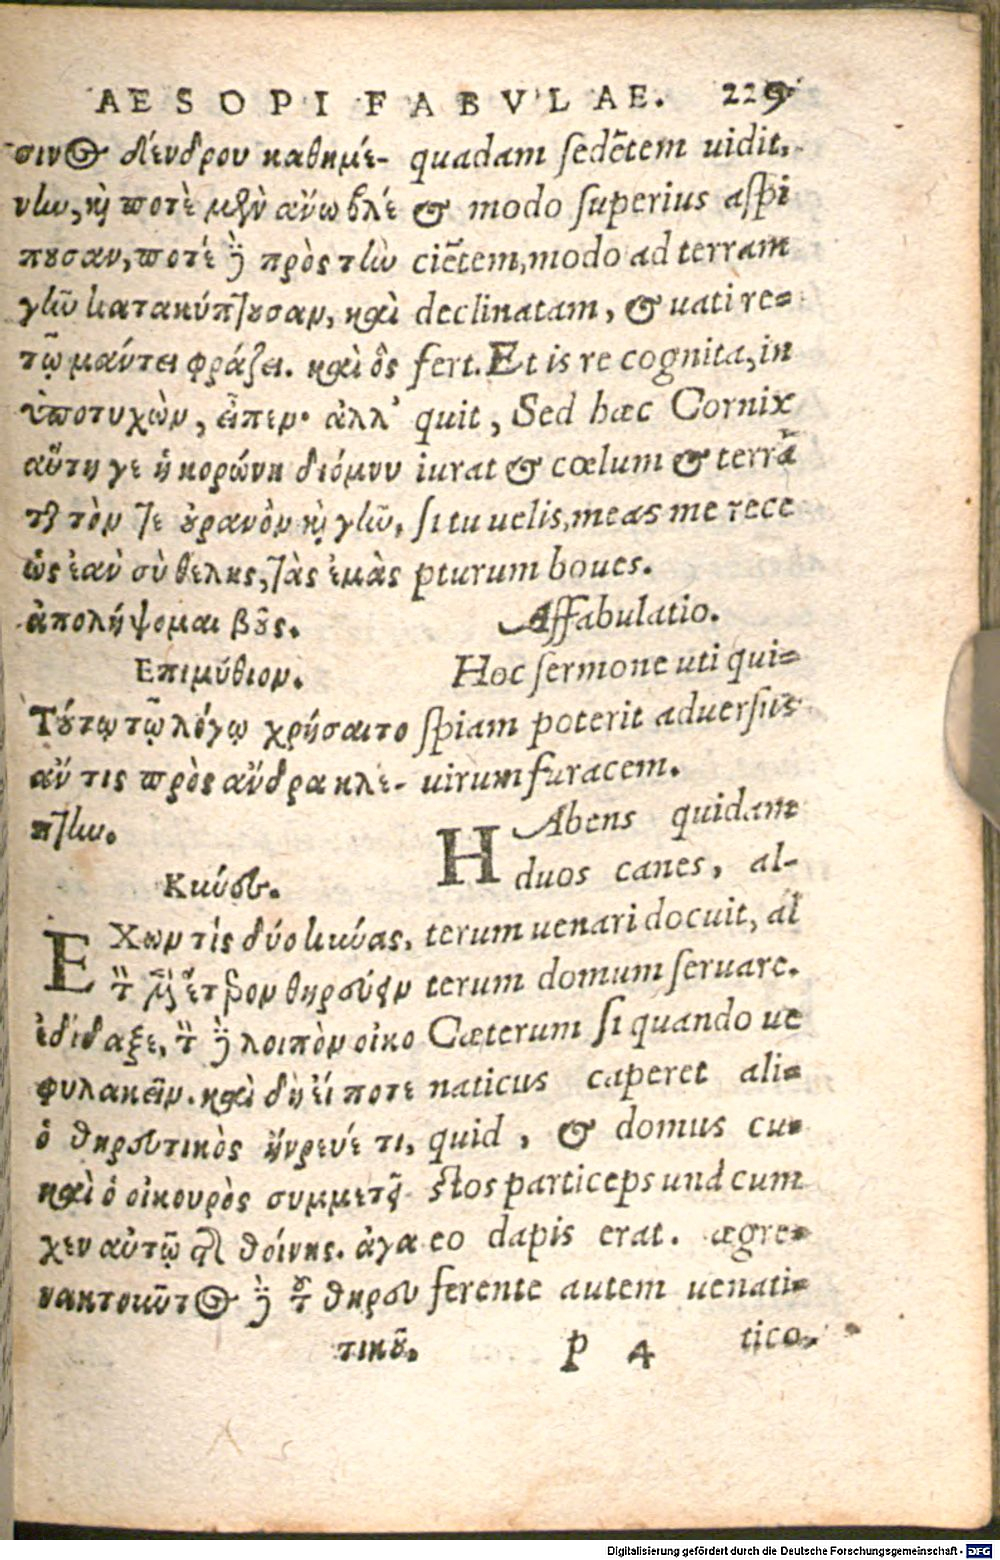 AESOPI FABVLAE. 229
σινος δένδρου καθημέ-
νην, καὶ ποτὲ μὲν ἄνω βλέ
πουσαν, ποτέ δὲ πρὸς τὴν
γῆν κατακύπτουσαν, καὶ
τῷ μάντει φράζει. καὶ ὃς
ὑποτυχὼν, εἶπεν· ἀλλ'
αὕτη γε ἡ κορώνη διόμνυ
ται τόν τε οὐρανὸν καὶ γῆν,
ὡς ἐὰν σὺ θέλῃς, τὰς ἐμὰς
ἀπολήψομαι βοῦς.
Επιμύθιον.
Τούτῳ τῷ λόγῳ χρήσαιτο
ἄν τις πρὸς ἄνδρα κλέ-
πτην.
Κύνες.
ΕΧων τὶς δύο κύνας,
τὸν μὲν ἕτερον θηρεύειν
ἐδίδαξε, τὸν δὲ λοιπὸν οἰκο
φυλακεῖν. καὶ δὴ εἴ ποτε
ὁ θηρευτικὸς ἤγρευέ τι,
καὶ ὁ οἰκουρὸς συμμετεῖ-
χεν αὐτῷ τῆς θοίνης. ἀγα
νακτοῦντος δὲ τοῦ θηρευ
τικοῦ.
quadam sedẽtem uidit,
& modo superius aspi
ciẽtem, modo ad terram
declinatam, & uati re=
fert. Et is re cognita, in
quit, Sed hæc Cornix
iurat & cœlum & terrã
si tu uelis, meas me rece
pturum boues.
Affabulatio.
Hoc sermone uti qui=
spiam poterit aduersus
uirum furacem.
HAbens quidam
duos canes, al-
terum uenari docuit, al
terum domum seruare.
Cæterum si quando ue
naticus caperet ali=
quid, & domus cu=
stos particeps unà cum
eo dapis erat. ægre=
ferente autem uenati=
P 4 tico,
Digitalisierung gefördert durch die Deutsche Forschungsgemeinschaft - DFG